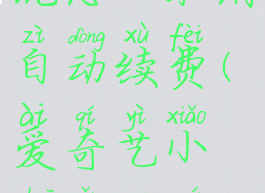 zì dòng xù fèi
自动续费(
ài qí yì xiǎo
爱奇艺小